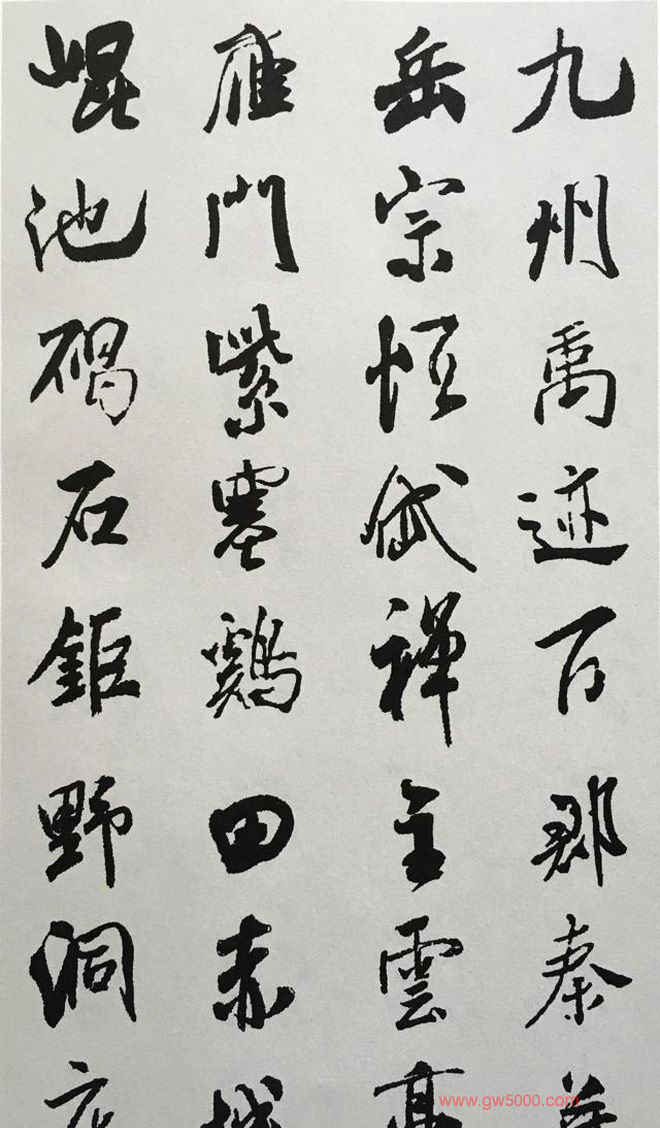 九州禹迹百郡秦
岳宗恒岱禪主雲亭
雁門紫塞鷄田赤城
崐池碣石鉅野洞
www.gw5000.com